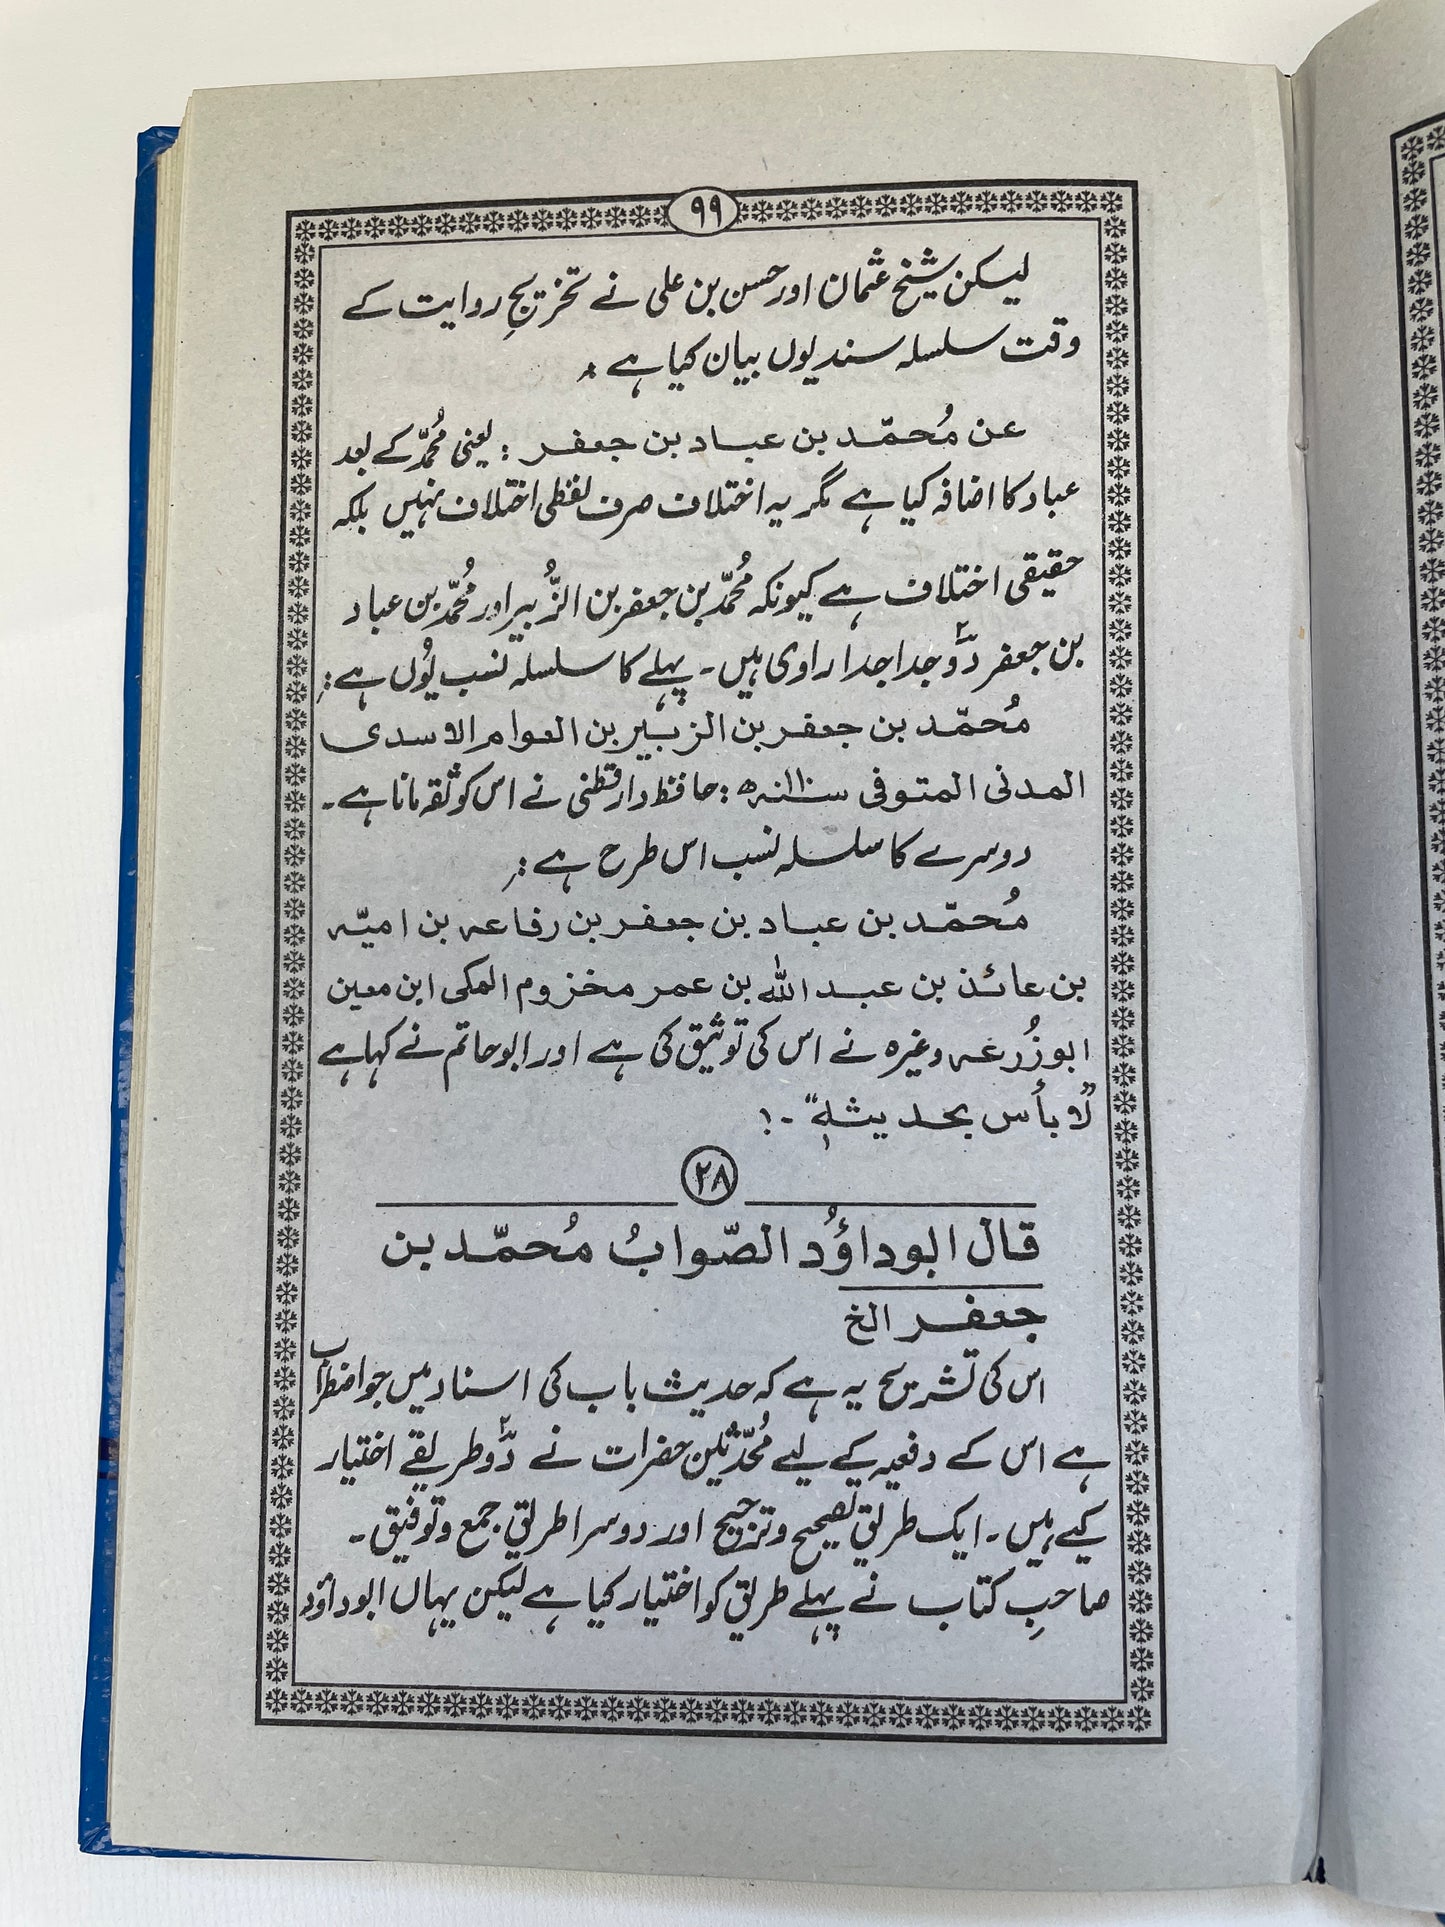 ۹۹
لیکن شیخ عثمان اور حسن بن علی نے تخریجِ روایت کے
وقت سلسلہ سند یوں بیان کیا ہے ؞
عن مُحمّد بن عباد بن جعفر : یعنی مُحمّد کے بعد
عباد کا اضافہ کیا ہے مگر یہ اختلاف صرف لفظی اختلاف نہیں بلکہ
حقیقی اختلاف ہے کیونکہ مُحمّد بن جعفر بن الزُّبیر اور مُحمّد بن عباد
بن جعفر دَّو۲ جدا جدا راوی ہیں ۔ پہلے کا سلسلہ نسب یُوں ہے :
مُحمّد بن جعفر بن الزبیر بن العوام الاسدی
المدنی المتوفی سنہ ۱۱۰ھ : حافظ دارقطنی نے اس کو ثقہ مانا ہے ۔
دوسرے کا سلسلہ نسب اس طرح ہے :
مُحمّد بن عباد بن جعفر بن رفاعہ بن امیّہ
بن عائذ بن عبد اللّٰہ بن عمر مخزوم المکی ابن معین
ابو زُرغہ وغیرہ نے اس کی توثیق کی ہے اور ابو حاتم نے کہا ہے
”لا بأس بحدیثہٖ“ ۔!
۲۸
قال ابوداؤُد الصّوابُ مُحمّد بن
جعفر الخ
اس کی تشریح یہ ہے کہ حدیث باب کی اسناد میں جو اضطراب
ہے اس کے دفعیہ کے لیے مُحدّثین حضرات نے دَّو۲ طریقے اختیار
کیے ہیں ۔ ایک طریق تصحیح و ترجیح اور دوسرا طریق جمع و توفیق ۔
صاحبِ کتاب نے پہلے طریق کو اختیار کیا ہے لیکن یہاں ابوداؤد